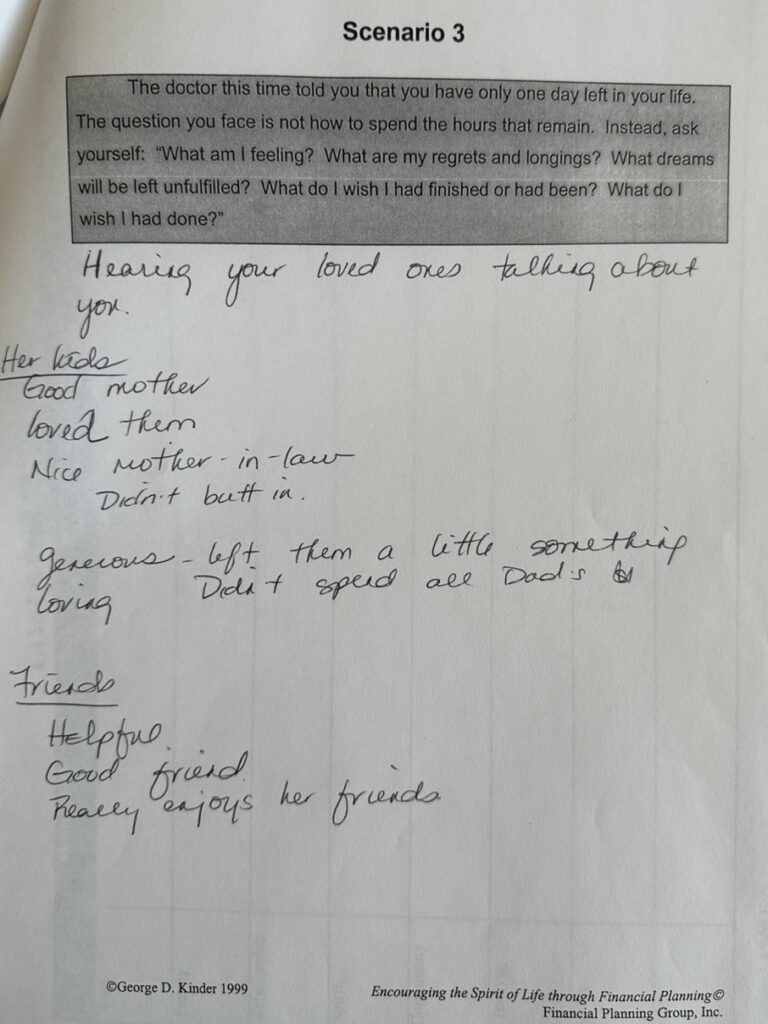 Scenario 3
The doctor this time told you that you have only one day left in your life.
The question you face is not how to spend the hours that remain. Instead, ask
yourself: "What am I feeling? What are my regrets and longings? What dreams
will be left unfulfilled? What do I wish I had finished or had been? What do I
wish I had done?"
Hearing your loved ones talking about
you.
Her kids
Good mother
loved them
Nice mother-in-law
Didn't butt in.
generous - left them a little something
loving Didn't spend all Dad's $
Friends
Helpful
Good friend.
Really enjoys her friends
©George D. Kinder 1999
Encouraging the Spirit of Life through Financial Planning©
Financial Planning Group, Inc.